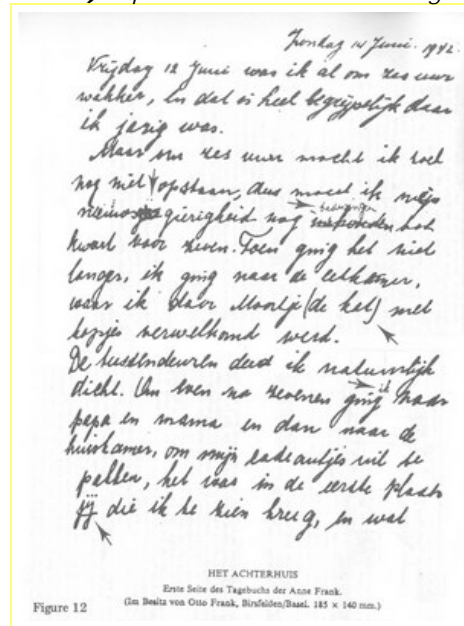 Zondag 14 Juni. 1942.
Vrijdag 12 Juni was ik al om zes uur
wakker, en dat is heel begrijpelijk daar
ik jarig was.
Maar om zes uur mocht ik toch
nog niet opstaan, dus moest ik mijn
nieuwsgierigheid nog bedwingen tot
kwart voor zeven. Toen ging het niet
langer, ik ging naar de eetkamer,
waar ik door Moortje (de kat) met
kopjes verwelkomd werd.
De tussendeuren deed ik natuurlijk
dicht. Om even na zevenen ging ik naar
papa en mama en dan naar de
huiskamer, om mijn cadeautjes uit te
pakken, het was in de eerste plaats
jij die ik te zien kreeg, en wat
HET ACHTERHUIS
Erste Seite des Tagebuchs der Anne Frank.
Figure 12 (Im Besitz von Otto Frank, Birsfelden/Basel. 185 × 140 mm.)